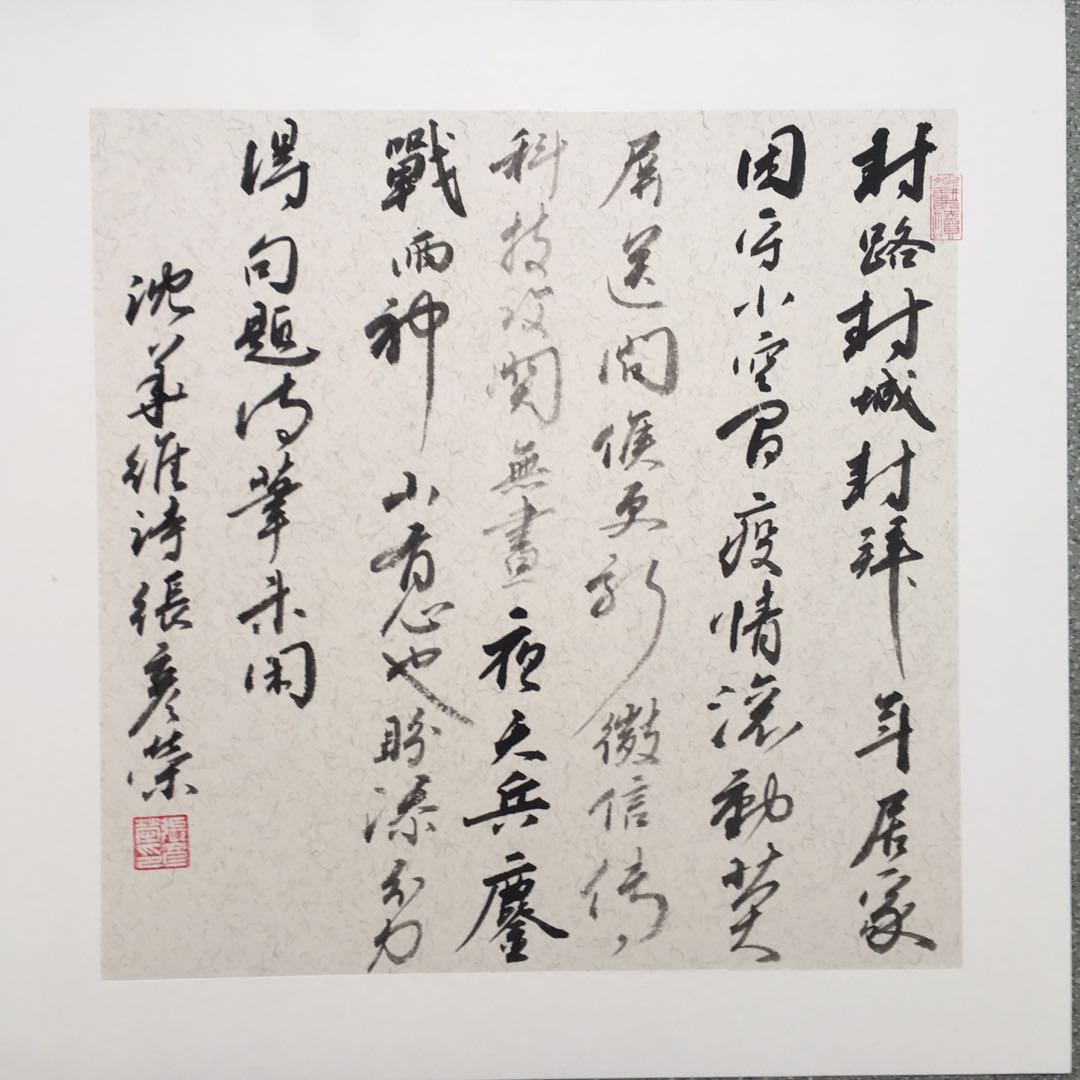 封路封城封拜年居家
困守小空間疫情滾動熒
屏送問候更新微信傳
科技攻關無晝夜天兵鏖
戰兩神山有心也盼添分力
得句題詩筆未閑
沈華維詩張彥榮